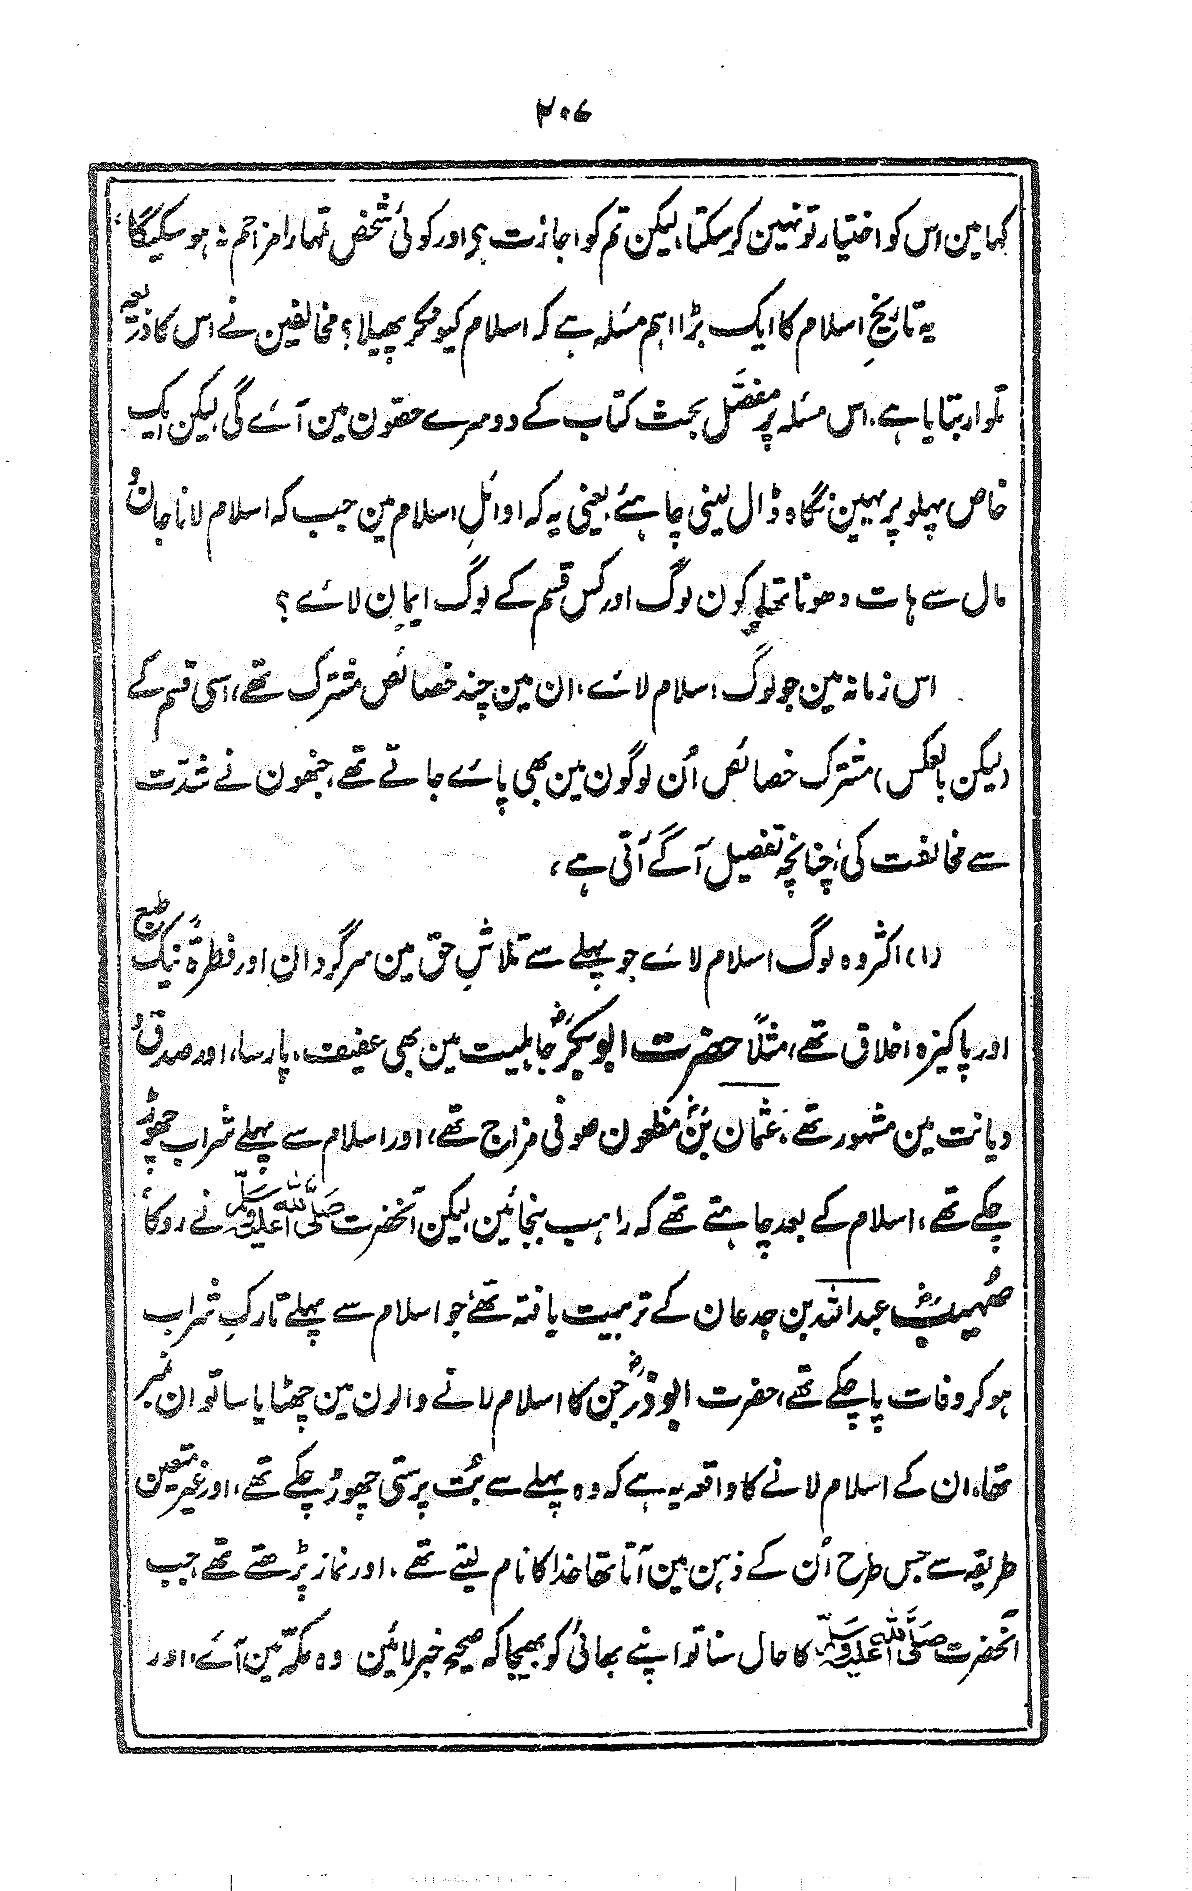 ۲۰۷
کہا مین اس کو اختیار تو نہین کر سکتا، لیکن تم کو اجازت ہی اور کوئی شخص تمہارا مزاحم نہ ہو سکیگا،
یہ تاریخِ اسلام کا ایک بڑا اہم مسئلہ ہے کہ اسلام کیونکر پھیلا؟ مخالفین نے اس کا ذریعہ
تلوار بتایا ہے، اس مسئلہ پر مفصّل بحث کتاب کے دوسرے حصّون مین آے گی لیکن ایک
خاص پہلو پر ہمین نگاہ ڈال لینی چاہئے یعنی یہ کہ اوائلِ اسلام مین جب کہ اسلام لانا جان و
مال سے ہات دھونا تھا، کون لوگ اور کس قسم کے لوگ ایمان لاے؟
اس زمانہ مین جو لوگ اسلام لاے، ان مین چند خصائص مشترک تھے، اسی قسم کے
(لیکن بالعکس) مشترک خصائص اُن لوگون مین بھی پاے جاتے تھے، جنھون نے شدّت
سے مخالفت کی، چنانچہ تفصیل آگے آتی ہے،
(۱) اکثر وہ لوگ اسلام لاے جو پہلے سے تلاشِ حق مین سرگردان اور فطرۃً نیک طبع
اور پاکیزہ اخلاق تھے، مثلاً حضرت ابوبکرؓ جاہلیت مین بھی عفیف، پارسا، اور صدق و
دیانت مین مشہور تھے، عثمان بنؓ مظعون صوفی مزاج تھے، اور اسلام سے پہلے شراب چھوڑ
چکے تھے، اسلام کے بعد چاہتے تھے کہ راہب بنجائین، لیکن آنحضرت صلی اللہ علیہ وسلم نے روکا،
صُہیبؓ عبداللہ بن جدعان کے تربیت یافتہ تھے، جو اسلام سے پہلے تارکِ شراب
ہو کر وفات پا چکے تھے، حضرت ابوذرؓ جن کا اسلام لانے والون مین چھٹا یا ساتوان نمبر
تھا، ان کے اسلام لانے کا واقعہ یہ ہے کہ وہ پہلے سے بُت پرستی چھوڑ چکے تھے، اور غیر متعین
طریقہ سے جس طرح اُن کے ذہن مین آتا تھا خدا کا نام لیتے تھے، اور نماز پڑھتے تھے، جب
آنحضرت صلی اللہ علیہ وسلم کا حال سنا تو اپنے بھائی کو بھیجا کہ صحیح خبر لائین وہ مکہ مین آے، اور